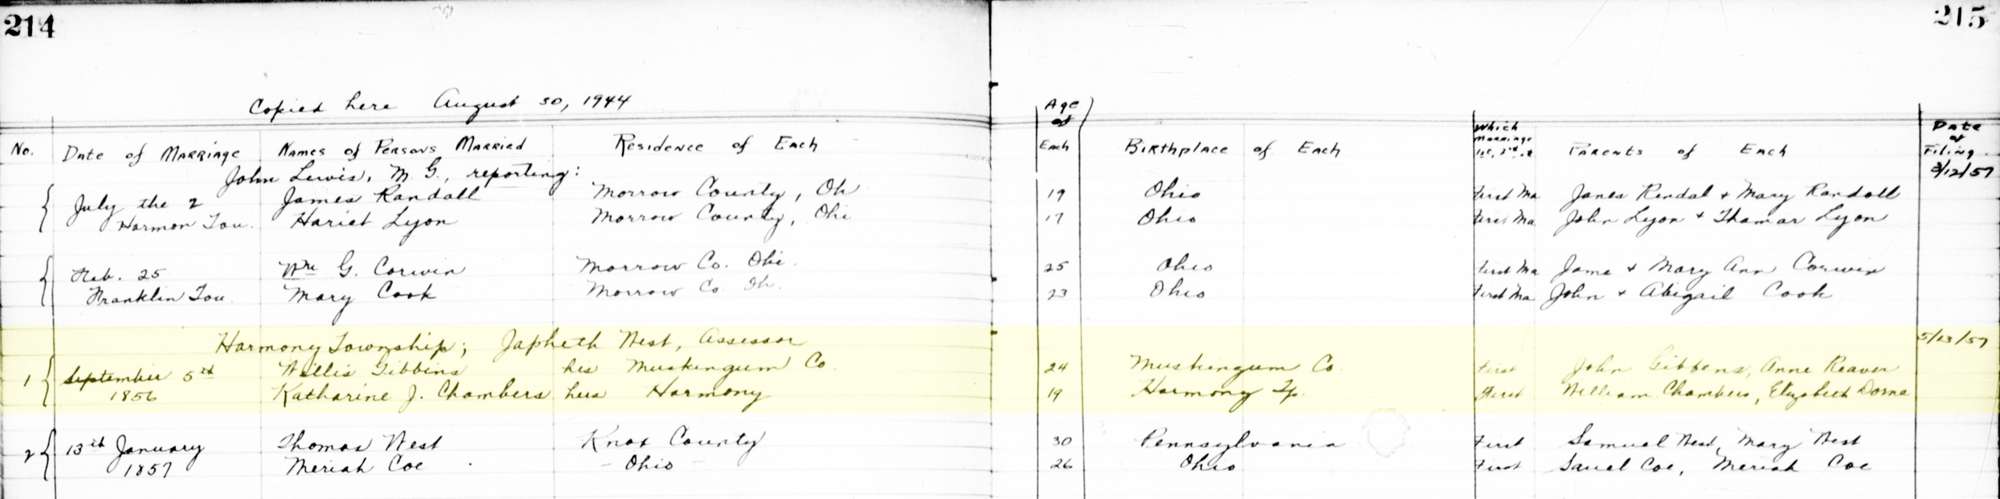 214
215
Copied here August 30, 1944
No.
Date of Marriage
Names of Persons Married
Residence of Each
Age
of
Each
Birthplace of Each
Which
marriage
Parents of Each
Date
of
Filing
3/12/57
John Lewis, M.G., reporting:
July the 2 James Randall Morrow County, Oh 19 Ohio First Ma James Rendal + Mary Randall
Harmon Tow. Hariet Lyon Morrow County, Ohi 17 Ohio First Ma John Lyon + Thamar Lyon
Feb. 25 Wm G. Corwin Morrow Co. Ohi. 25 Ohio First Ma Jame + Mary Ann Corwin
Franklin Tow. Mary Cook Morrow Co Oh. 23 Ohio First Ma John + Abigail Cook
Harmony Township; Japheth West, Assessor 5/23/57
1 September 5th Willis Gibbins his Muskingum Co. 24 Muskingum Co. First John Gibbens, Anne Reaver
1856 Katharine J. Chambers hers Harmony 19 Harmony Tp. First William Chambers, Elizabeth Dorne
2 13th January Thomas West Knox County 30 Pennsylvania First Samuel West, Mary West
1857 Meriah Coe - Ohio - 26 Ohio First Coe, Meriah Coe